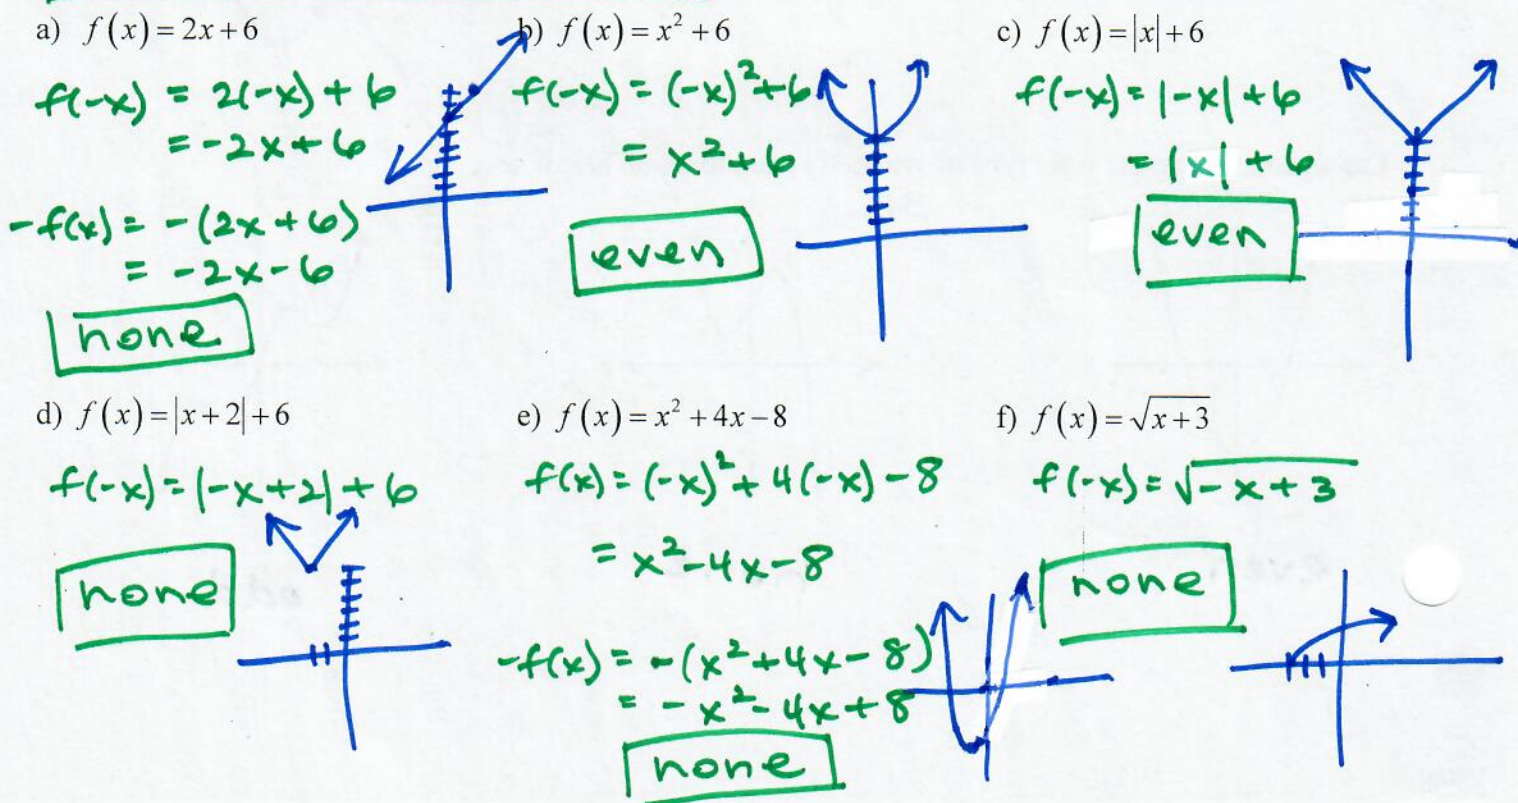 a) f(x) = 2x + 6
f(-x) = 2(-x) + 6
= -2x + 6
-f(x) = -(2x + 6)
= -2x - 6
none
b) f(x) = x² + 6
f(-x) = (-x)² + 6
= x² + 6
even
c) f(x) = |x| + 6
f(-x) = |-x| + 6
= |x| + 6
even
d) f(x) = |x + 2| + 6
f(-x) = |-x + 2| + 6
none
e) f(x) = x² + 4x - 8
f(x) = (-x)² + 4(-x) - 8
= x² - 4x - 8
-f(x) = -(x² + 4x - 8)
= -x² - 4x + 8
none
f) f(x) = √(x + 3)
f(-x) = √(-x + 3)
none